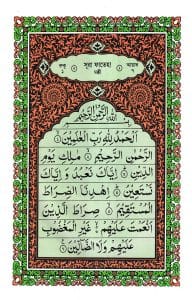 রুকু সূরা ফাতেহা আয়াত
১ মক্কী ৭
بِسْمِ اللهِ الرَّحْمٰنِ الرَّحِيْمِ
اَلْحَمْدُ لِلّٰهِ رَبِّ الْعٰلَمِيْنَ
الرَّحْمٰنِ الرَّحِيْمِ مٰلِكِ يَوْمِ
الدِّيْنِ اِيَّاكَ نَعْبُدُ وَ اِيَّاكَ
نَسْتَعِيْنُ اِهْدِنَا الصِّرَاطَ
الْمُسْتَقِيْمَ صِرَاطَ الَّذِيْنَ
اَنْعَمْتَ عَلَيْهِمْ غَيْرِ الْمَغْضُوْبِ
عَلَيْهِمْ وَلَا الضَّالِّيْنَ